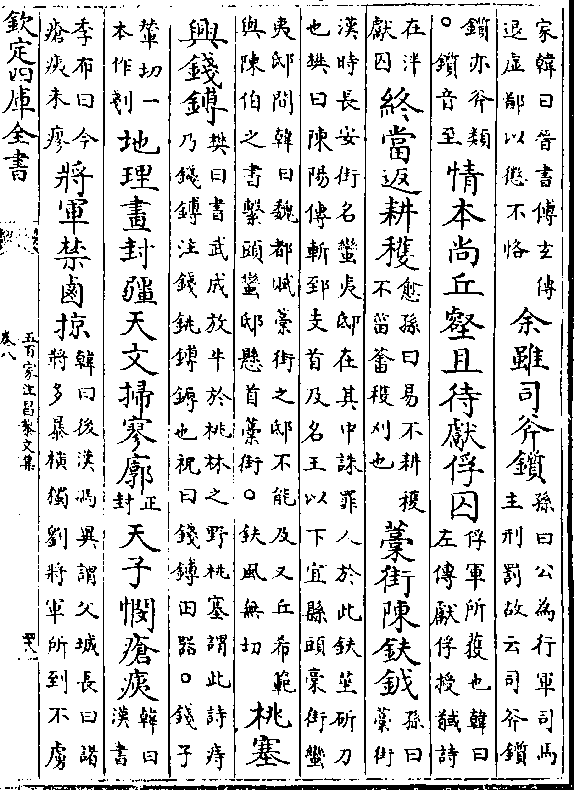 家韓曰晉書傅玄傳
退虛鄙以愆不恪
余雖司斧鑕
孫曰公為行軍司馬
主刑罰故云司斧鑕
鑕亦斧類
。鑕音至
情本尚丘壑且待獻俘囚
俘軍所獲也韓曰
左傳獻俘授馘詩
在泮
獻囚
終當返耕穫
愈孫曰易不耕穫
不菑畬穫刈也
藁街陳鈇鉞
孫曰
藁街
漢時長安街名蠻夷邸在其中誅罪人於此鈇莝斫刀
也樊曰陳陽傳斬郅支首及名王以下宜縣頭藁街蠻
夷邸間韓曰魏都賦藁街之邸不能及又丘希範
與陳伯之書繫頭蠻邸懸首藁街。鈇風無切
桃塞
興錢鏄
樊曰書武成放牛於桃林之野桃塞謂此詩庤
乃錢鏄注錢銚鏄鎒也祝曰錢鏄田器。錢子
輦切一
本作剗
地理畫封疆天文掃寥廓
正
封
天子憫瘡痍
韓曰
漢書
季布曰今
瘡痍未瘳
將軍禁鹵掠
韓曰後漢馮異謂父城長曰諸
將多暴橫獨劉將軍所到不虜
欽定四庫全書
五百家注昌黎文集
卷八